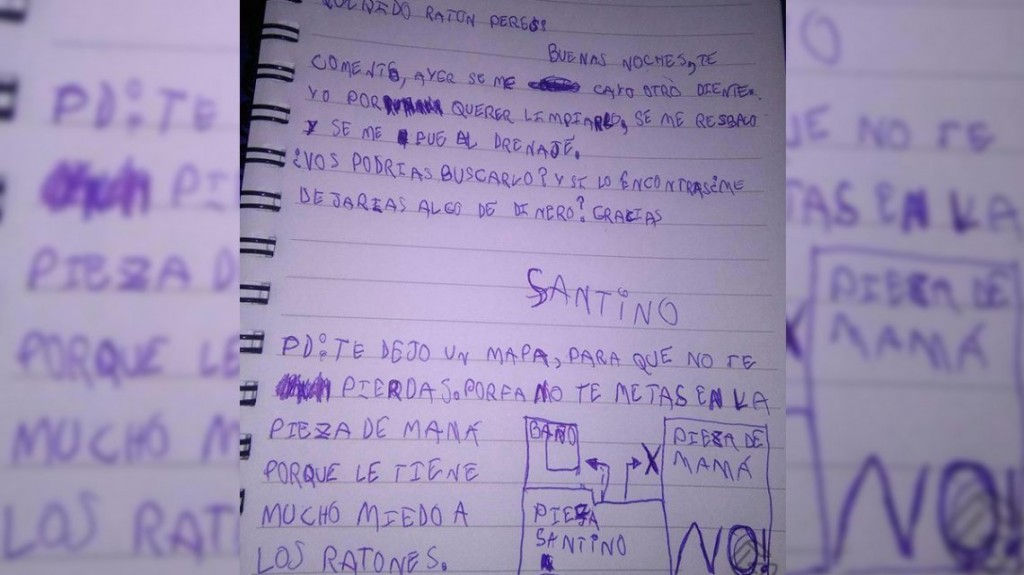 QUERIDO RATON PERES:
BUENAS NOCHES, TE
COMENTO, AYER SE ME CAYO OTRO DIENTE.
YO POR QUERER LIMPIARLO, SE ME RESBALO
Y SE ME FUE AL DRENAJE.
¿VOS PODRIAS BUSCARLO? Y SI LO ENCONTRAS ¿ME
DEJARIAS ALGO DE DINERO? GRACIAS
SANTINO
PD: TE DEJO UN MAPA, PARA QUE NO TE
PIERDAS. PORFA NO TE METAS EN LA
PIEZA DE MAMÁ
PORQUE LE TIENE
MUCHO MIEDO A
LOS RATONES.
BAÑO
PIEZA
SANTINO
X
PIEZA DE
MAMÁ
NO!